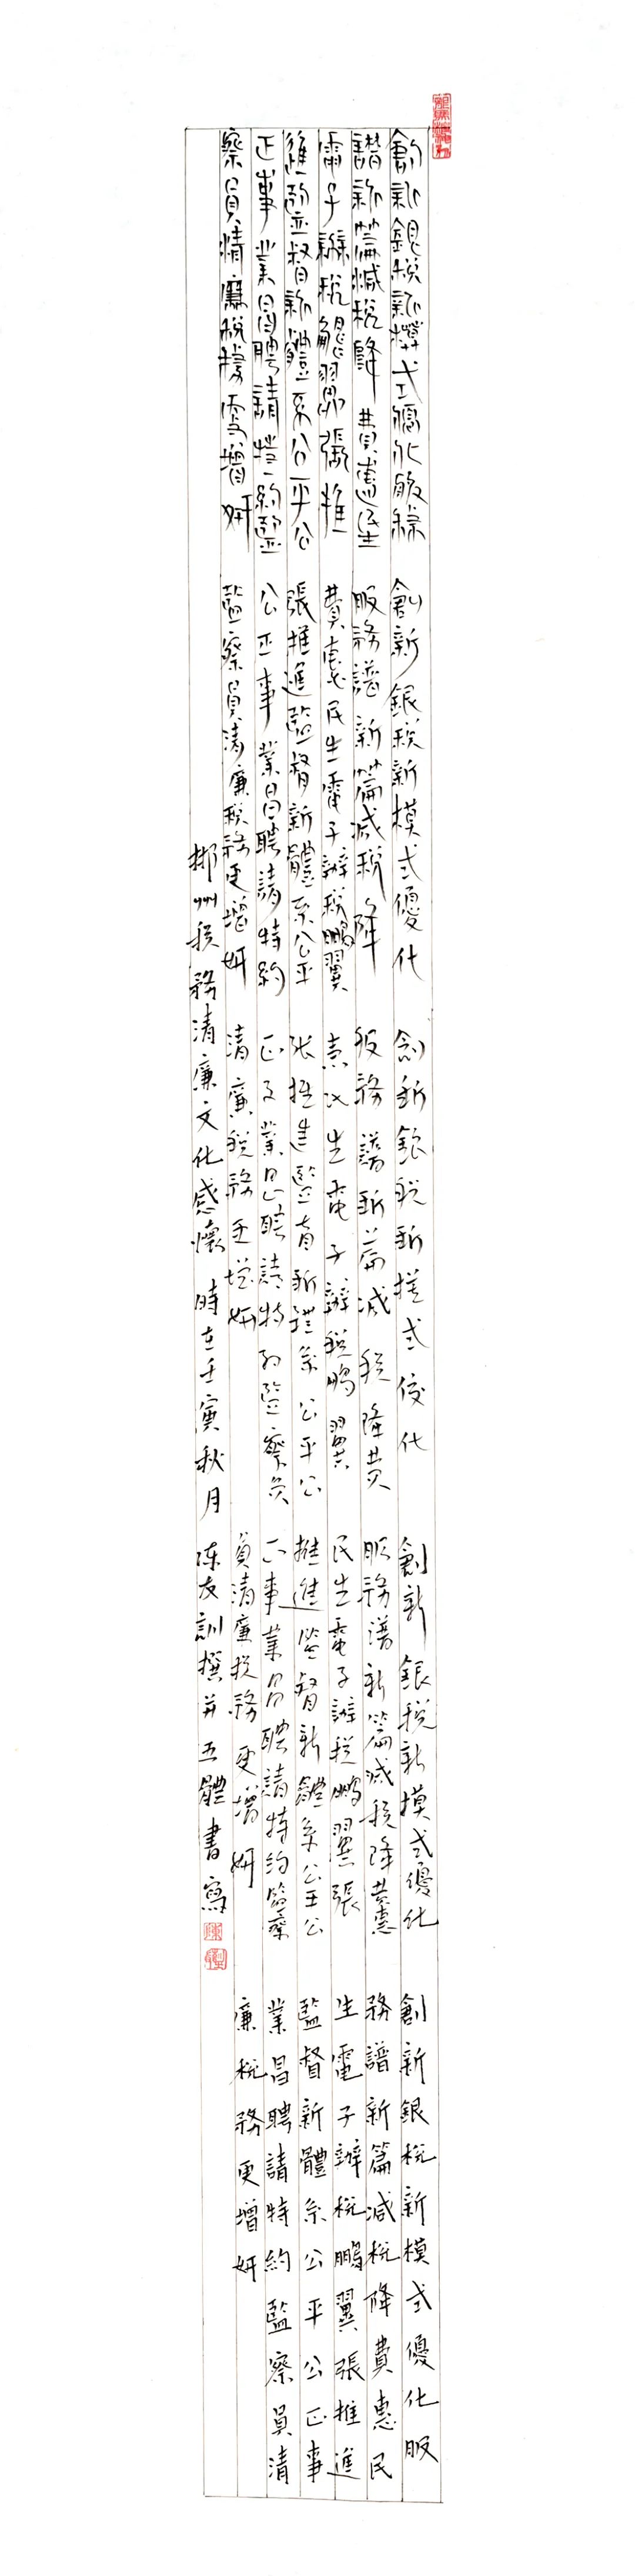 創新銀稅新模式優化服務
譜新篇減稅降費惠民生
電子辦稅鵬翼張推
進監督新體系公平公
正事業昌聘請特約監
察員清廉稅務更增妍
創新銀稅新模式優化
服務譜新篇減稅降
費惠民生電子辦稅鵬翼
張推進監督新體系公平
公正事業昌聘請特約
監察員清廉稅務更增妍
創新銀稅新模式優化
服務譜新篇減稅降費
惠民生電子辦稅鵬翼
張推進監督新體系公平公
正事業昌聘請特約監察員
清廉稅務更增妍
創新銀稅新模式優化
服務譜新篇減稅降費惠
民生電子辦稅鵬翼張
推進監督新體系公平公
正事業昌聘請特約監察
員清廉稅務更增妍
創新銀稅新模式優化服
務譜新篇減稅降費惠民
生電子辦稅鵬翼張推進
監督新體系公平公正事
業昌聘請特約監察員清
廉稅務更增妍
郴州稅務清廉文化感懷 時在壬寅秋月 陳友訓撰并五體書寫